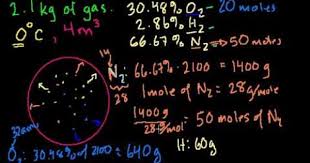 2.1 kg of gas.
0°C, 4m³
30.48% O₂ - 20 moles
2.86% H₂ -
66.67% N₂ ⇒ 50 moles
14
N₂: 66.67% · 2100 = 1400g
28
1 mole of N₂ = 28 g/mole
1400g / 28 g/mole = 50 moles of N₂
32g/mole
O₂: 30.48% of 2100 = 640g
H: 60g